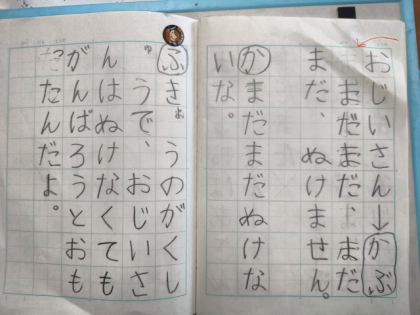 おじいさん↓かぶ
まだまだ、まだ
まだ、ぬけません。
かまだまだぬけな
いな。
ふきょうのがくし
ゅうで、おじいさ
んはぬけなくても
がんばろうとおも
ったんだよ。